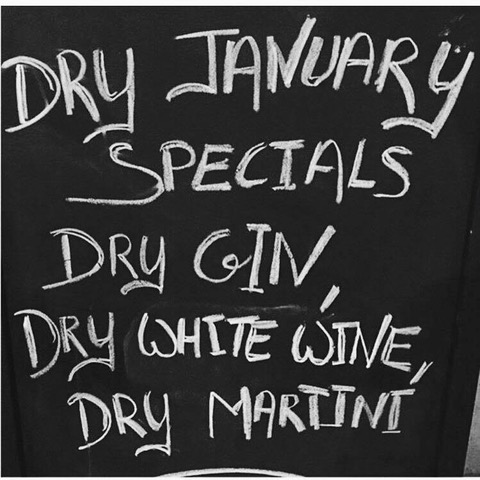 DRY JANUARY
SPECIALS
DRY GIN,
DRY WHITE WINE,
DRY MARTINI